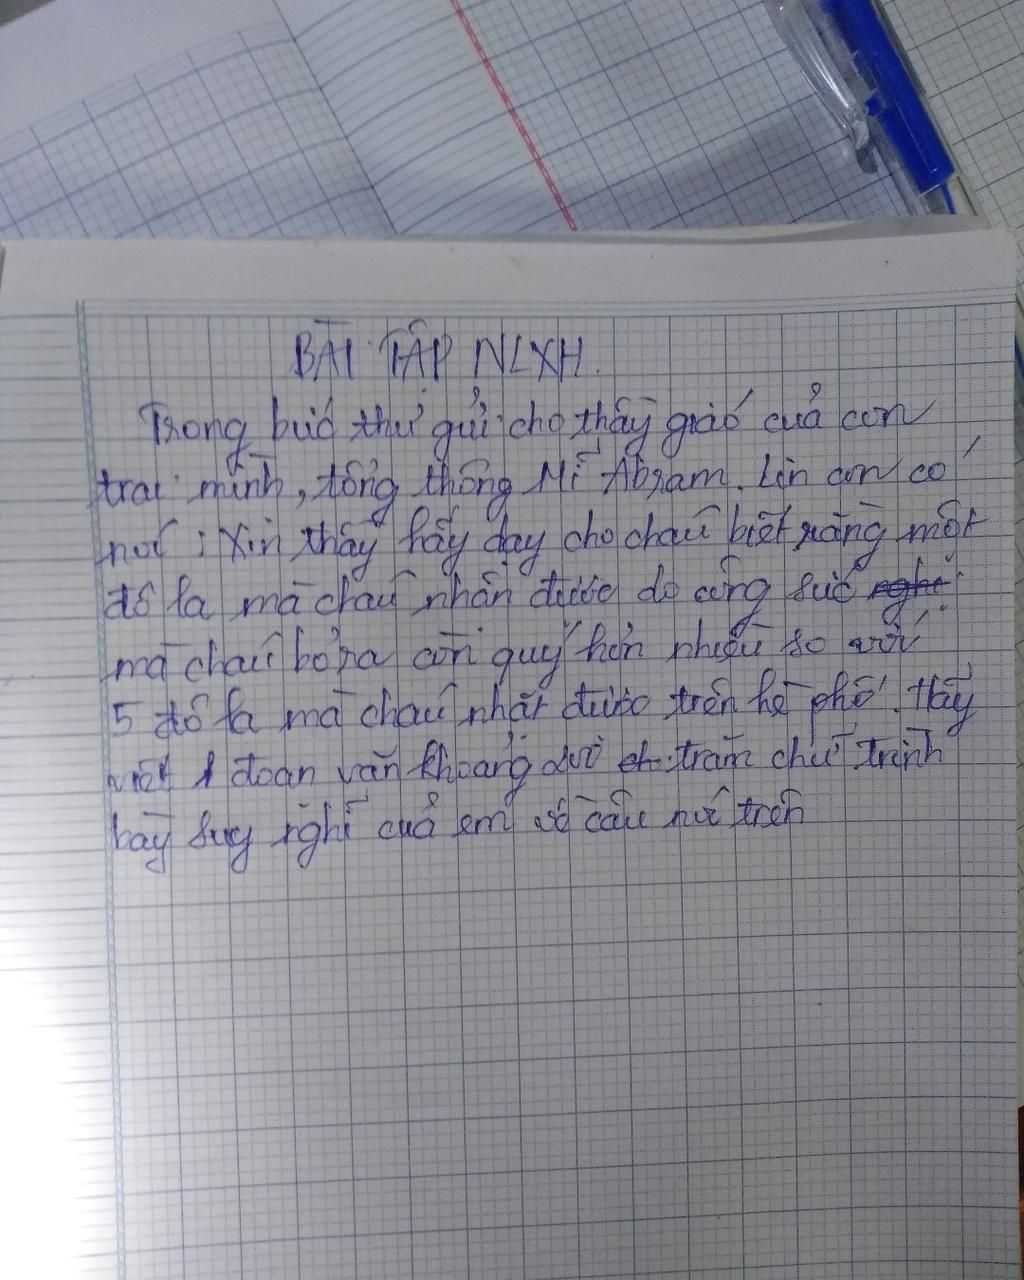 BÀI TẬP NLXH.
Trong bức thư gửi cho thầy giáo của con
trai mình, tổng thống Mĩ Abram. Lin con có
nói : Xin thầy hãy dạy cho cháu biết rằng một
đô la mà cháu nhận được do công sức
mà cháu bỏ ra còn quý hơn nhiều so với
5 đô la mà cháu nhặt được trên hè phố. Hãy
viết 1 đoạn văn khoảng trăm chữ trình
bày suy nghĩ của em về câu nói trên